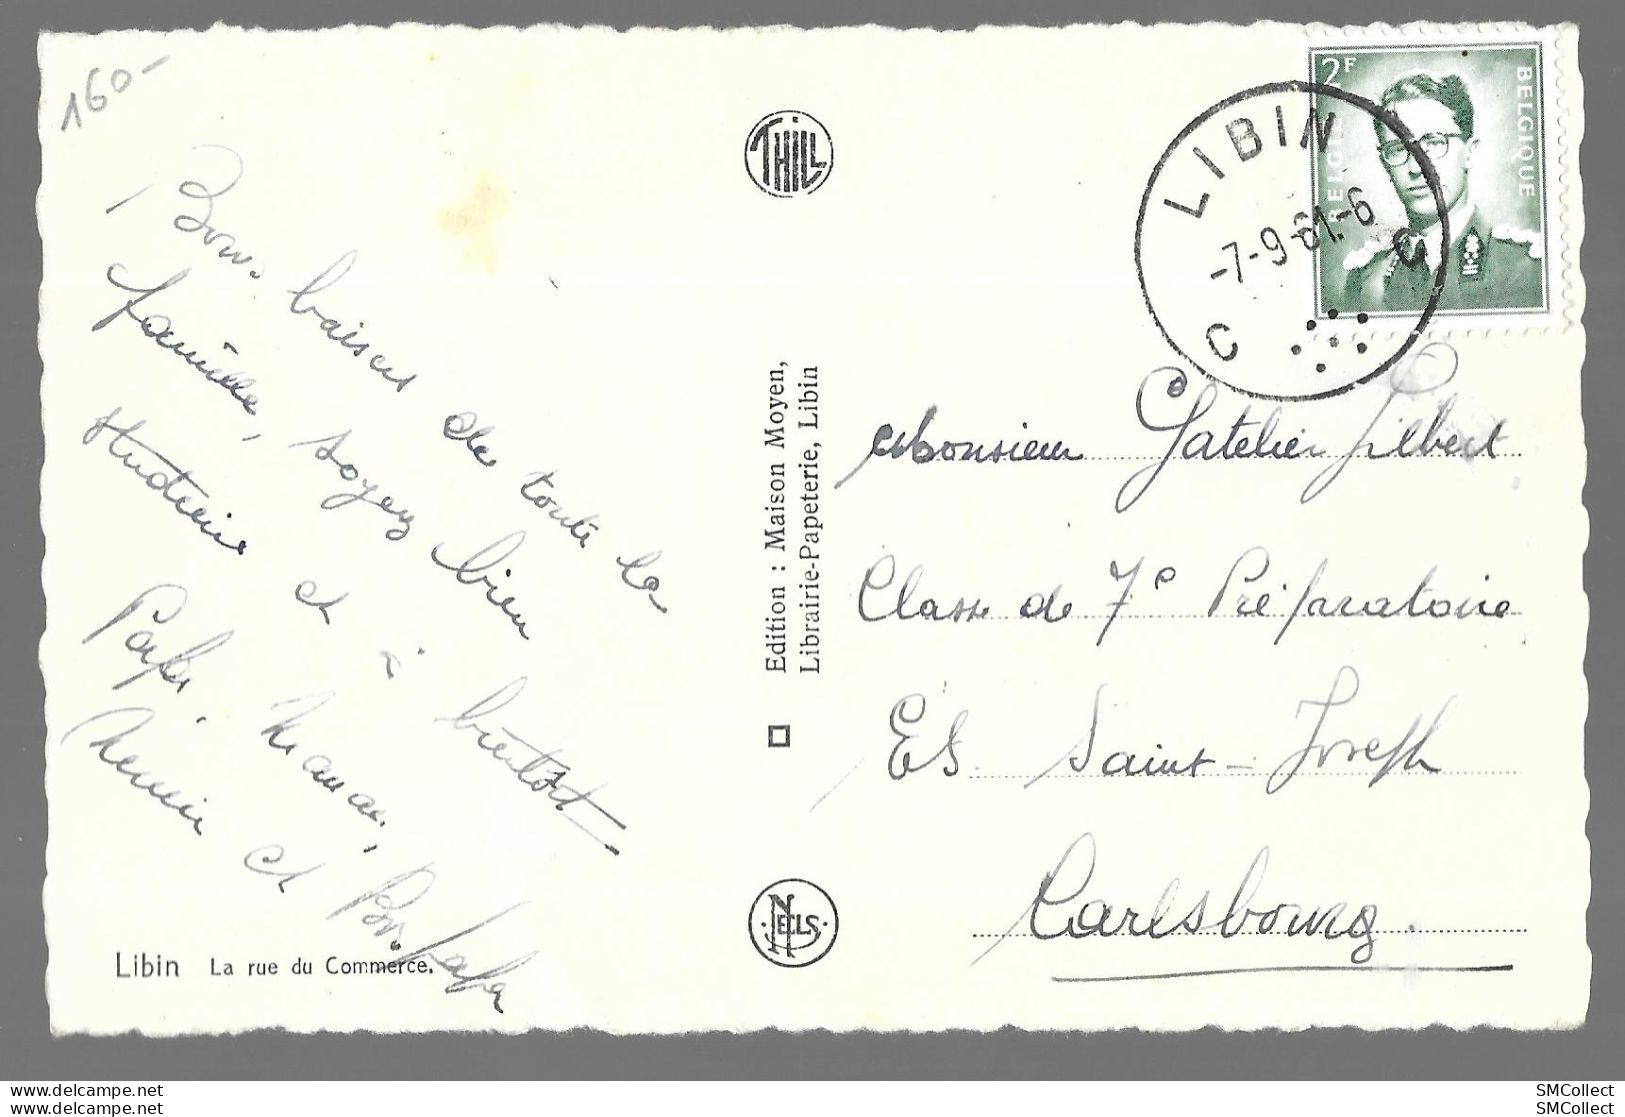 160-
Bons baisers de toute la
famille, soyez bien
studieux et à bientôt
Papa, Maman,
et Bon papa
Libin La rue du Commerce.
THILL
Edition : Maison Moyen,
Librairie-Papeterie, Libin
NELS
2F
BELGIË
BELGIQUE
LIBIN
-7-9-61.-6
C C
Monsieur Gatelier Gilbert
Classe de 7e Préparatoire
ES Saint-Joseph
Carlsbourg.
www.delcampe.net
www.delcampe.net
SMCollect
SMCollect